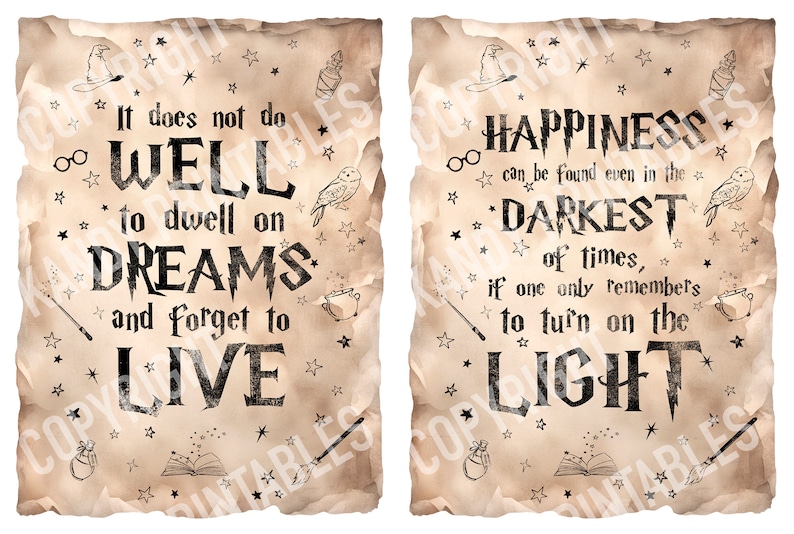 It does not do
WELL
to dwell on
DREAMS
and forget to
LIVE
HAPPINESS
can be found even in the
DARKEST
of times,
if one only remembers
to turn on the
LIGHT
COPYRIGHT
KANDI PRINTABLES
COPYRIGHT
PRINTABLES
COPYRIGHT
KANDI PRINTABLES
COPYRIGHT
PRINTABLES